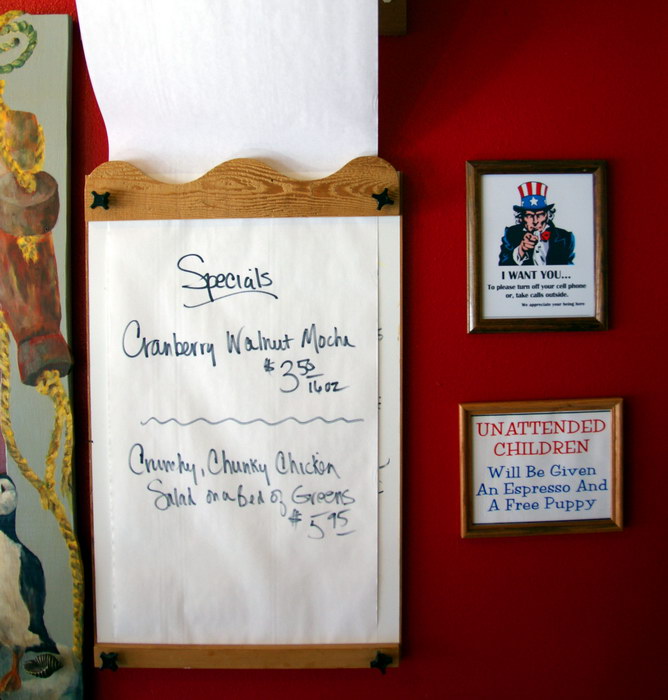 Specials
Cranberry Walnut Mocha
$3.55/16oz
Crunchy, Chunky Chicken
Salad on a Bed of Greens
$5.95
I WANT YOU...
To please turn off your cell phone
or, take calls outside.
We appreciate your being here
UNATTENDED
CHILDREN
Will Be Given
An Espresso And
A Free Puppy